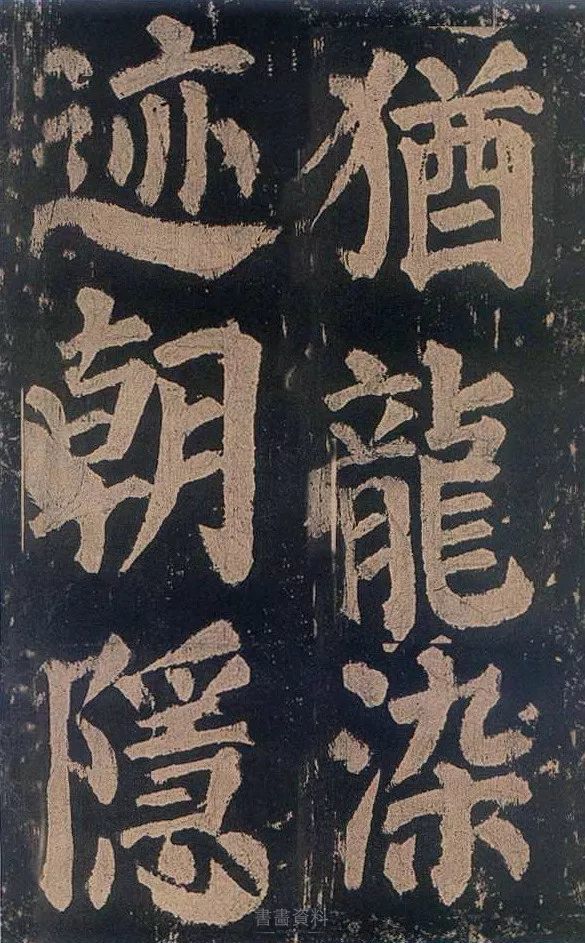 猶龍染
迹朝隱
書畫資料